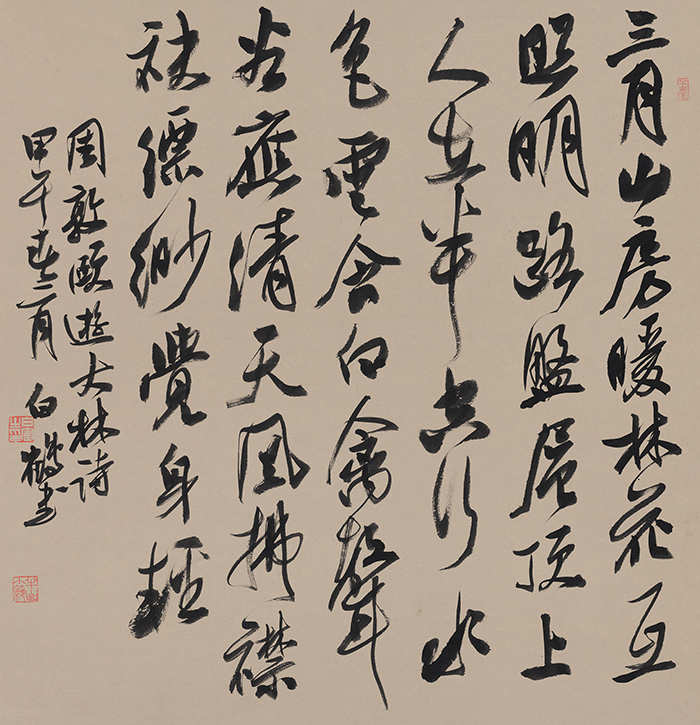 三月山房暖林花互
照明路盤層頂上
人在半空行水
色雲含白禽聲
谷應清天風拂襟
袂縹緲覺身輕
周敦頤遊大林詩
甲午春二月 白鶴書